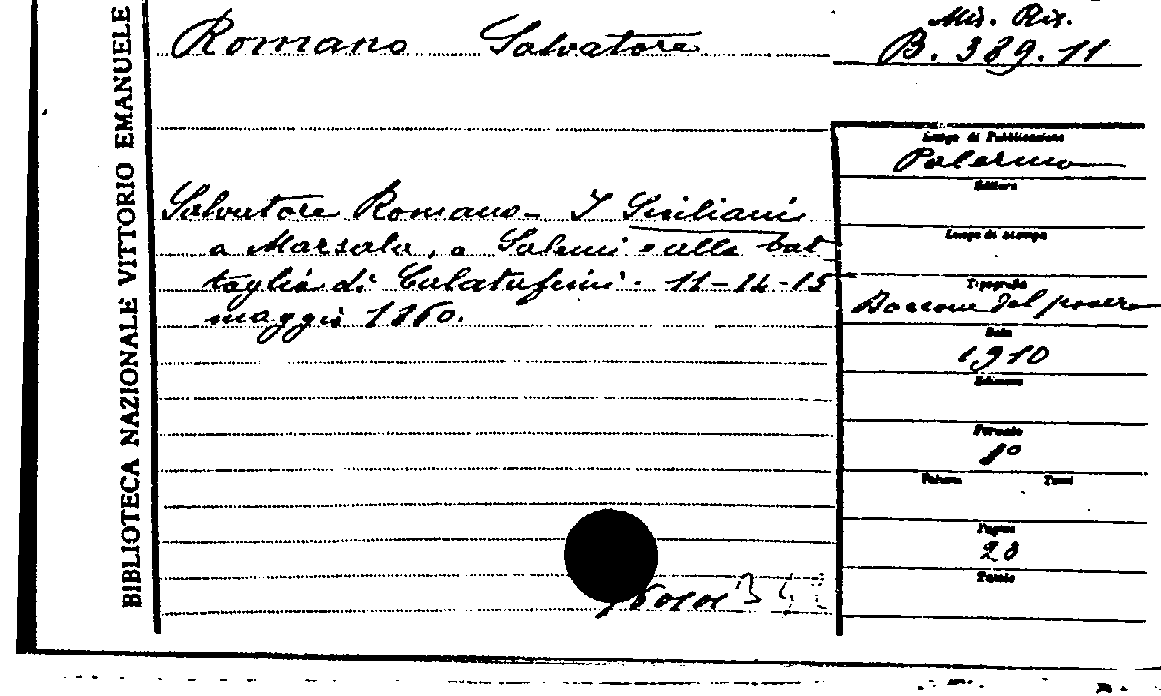 BIBLIOTECA NAZIONALE VITTORIO EMANUELE
Romano Salvatore
Mis. Ris.
B. 389. 11
Salvatore Romano - I Siciliani
a Marsala, a Salemi e alla bat
taglia di Calatafimi. 11-14-15
maggio 1860.
Luogo di Pubblicazione
Palermo
Editore
Luogo di stampa
Tipografia
Boccone del povero
Data
1910
Edizione
Formato
8°
Volumi Tomi
Pagine
Tavole